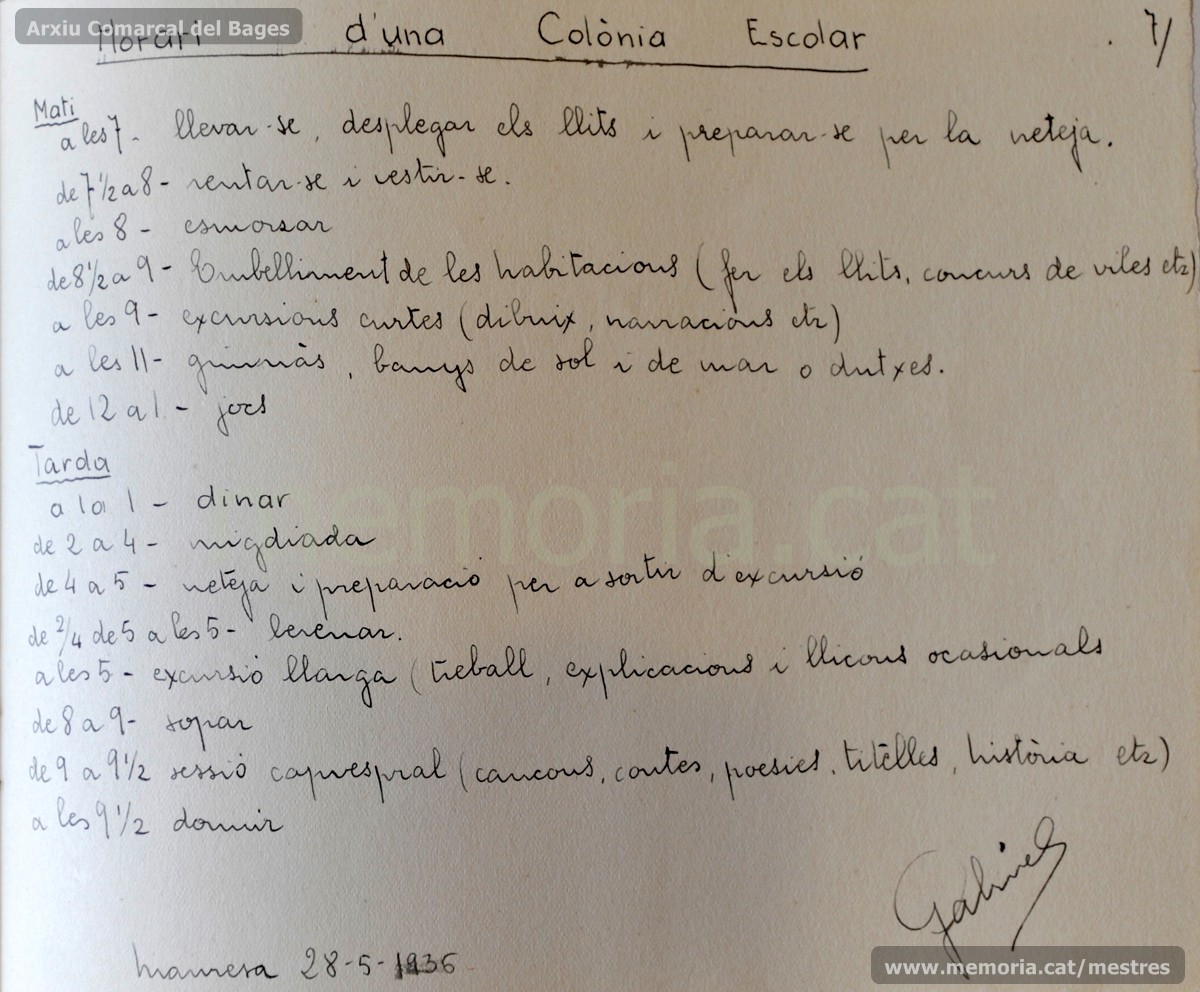 Arxiu Comarcal del Bages
Horari d'una Colònia Escolar
7/
Mati
a les 7 - llevar-se, desplegar els llits i preparar-se per la neteja.
de 7 1/2 a 8 - rentar-se i vestir-se.
a les 8 - esmorzar
de 8 1/2 a 9 - Embelliment de les habitacions (fer els llits, concurs de viles etz)
a les 9 - excursions curtes (dibuix, narracions etz)
a les 11 - gimnàs, banys de sol i de mar o dutxes.
de 12 a 1 - jocs
Tarda
a la 1 - dinar
de 2 a 4 - migdiada
de 4 a 5 - neteja i preparació per a sortir d'excursió
de 2/4 de 5 a les 5 - berenar.
a les 5 - excursió llarga (treball, explicacions i lliçons ocasionals
de 8 a 9 - sopar
de 9 a 9 1/2 sessió capvespral (cançons, contes, poesies, titèlles, història etz)
a les 9 1/2 dormir
Gabriel
Manresa 28-5-1936
memoria.cat
www.memoria.cat/mestres